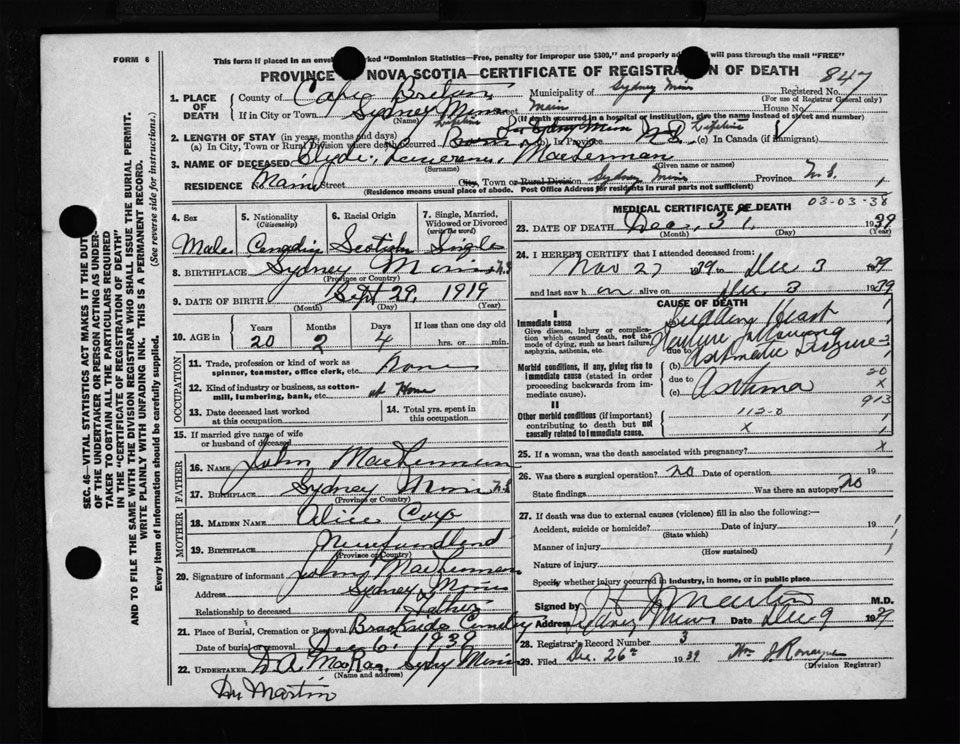 FORM 6
This form if placed in an envelope marked "Dominion Statistics—Free, penalty for improper use $300," and properly addressed will pass through the mail "FREE"
PROVINCE OF NOVA SCOTIA—CERTIFICATE OF REGISTRATION OF DEATH
847
1. PLACE OF DEATH
County of Cape Breton
Municipality of Sydney Mines
Registered No.
(For use of Registrar General only)
If in City or Town Sydney Mines Street Main House No.
(Name) (If death occurred in a hospital or institution, give the name instead of street and number)
2. LENGTH OF STAY (in years, months and days)
(a) In City, Town or Rural Division where death occurred Lifetime Born in Sydney Mines (b) In Province N.S. Lifetime (c) In Canada (if immigrant)
3. NAME OF DECEASED Clyde, MacLennan
(Surname) (Given name or names)
RESIDENCE Main Street City, Town or Rural Division Sydney Mines Province N.S.
(Residence means usual place of abode. Post Office Address for residents in rural parts not sufficient)
SEC. 46—VITAL STATISTICS ACT MAKES IT THE DUTY
OF THE UNDERTAKER OR PERSON ACTING AS UNDER-
TAKER TO OBTAIN ALL THE PARTICULARS REQUIRED
IN THE "CERTIFICATE OF REGISTRATION OF DEATH"
AND TO FILE THE SAME WITH THE DIVISION REGISTRAR WHO SHALL ISSUE THE BURIAL PERMIT.
WRITE PLAINLY WITH UNFADING INK. THIS IS A PERMANENT RECORD.
Every item of information should be carefully supplied. (See reverse side for instructions.)
4. Sex 5. Nationality (Citizenship) 6. Racial Origin 7. Single, Married, Widowed or Divorced (write the word)
Male Canadian Scotish Single
8. BIRTHPLACE Sydney Mines N.S.
(Province or Country)
9. DATE OF BIRTH Sept 29, 1919
(Month) (Day) (Year)
10. AGE in Years Months Days If less than one day old
20 2 4 hrs. or min.
OCCUPATION
11. Trade, profession or kind of work as spinner, teamster, office clerk, etc. None
12. Kind of industry or business, as cotton-mill, lumbering, bank, etc. at Home
13. Date deceased last worked at this occupation
14. Total yrs. spent in this occupation
15. If married give name of wife or husband of deceased
FATHER
16. NAME John MacLennan
17. BIRTHPLACE Sydney Mines N.S.
(Province or Country)
MOTHER
18. MAIDEN NAME Alice
19. BIRTHPLACE Newfundland
(Province or Country)
20. Signature of informant John MacLennan
Address Sydney Mines
Relationship to deceased Father
21. Place of Burial, Cremation or Removal Brookside Cemetery
Date of burial or removal Dec 6, 1939
22. UNDERTAKER D. A. MacRae, Sydney Mines
(Name and address)
Dr. Martin
MEDICAL CERTIFICATE OF DEATH
03-03-38
23. DATE OF DEATH Dec, 3 1939
(Month) (Day) (Year)
24. I HEREBY CERTIFY that I attended deceased from:
Nov 27 1939 to Dec 3 1939
and last saw h im alive on Dec. 3 1939
CAUSE OF DEATH
I
Immediate cause
Give disease, injury or complication which caused death, not the mode of dying, such as heart failure, asphyxia, asthenia, etc.
(a) Sudden Heart
Failure following
due to
(b) Astmatic Seizure
Morbid conditions, if any, giving rise to immediate cause (stated in order proceeding backwards from immediate cause).
due to
(c) Asthma
20
x
913
II
Other morbid conditions (if important) contributing to death but not causally related to immediate cause.
112-0
x
25. If a woman, was the death associated with pregnancy? x
26. Was there a surgical operation? no Date of operation 19
State findings Was there an autopsy? No
27. If death was due to external causes (violence) fill in also the following:—
Accident, suicide or homicide? Date of injury 19
(State which)
Manner of injury
(How sustained)
Nature of injury
Specify whether injury occurred in industry, in home, or in public place
Signed by Martin M.D.
Address Sydney Mines Date Dec 9 1939
28. Registrar's Record Number 3
29. Filed Dec. 26th 1939 Wm J Ronayne
(Division Registrar)